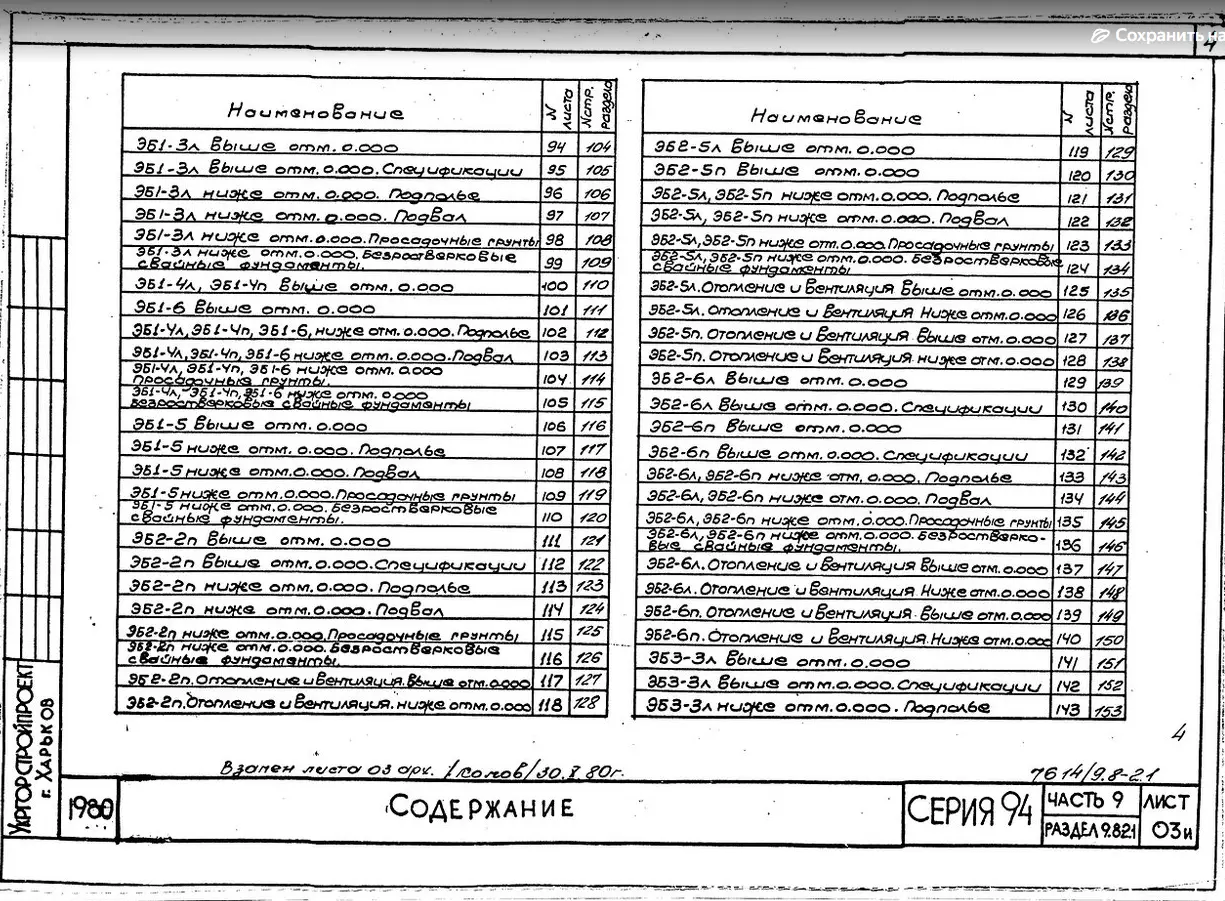 Сохранить на
4
Наименование
N листа
Nстр. раздела
ЭБ1-3л Выше отм. 0.000 94 104
ЭБ1-3л Выше отм. 0.000. Спецификации 95 105
ЭБ1-3л ниже отм. 0.000. Подполье 96 106
ЭБ1-3л ниже отм. 0.000. Подвал 97 107
ЭБ1-3л ниже отм. 0.000. Просадочные грунты 98 108
ЭБ1-3л ниже отм. 0.000. Безростверковые
свайные фундаменты. 99 109
ЭБ1-4л, ЭБ1-4п Выше отм. 0.000 100 110
ЭБ1-6 Выше отм. 0.000 101 111
ЭБ1-4л, ЭБ1-4п, ЭБ1-6, ниже отм. 0.000. Подполье 102 112
ЭБ1-4л, ЭБ1-4п, ЭБ1-6 ниже отм. 0.000. Подвал 103 113
ЭБ1-4л, ЭБ1-4п, ЭБ1-6 ниже отм. 0.000
Просадочные грунты. 104 114
ЭБ1-4л, ЭБ1-4п, ЭБ1-6 ниже отм. 0.000
безростверковые свайные фундаменты 105 115
ЭБ1-5 Выше отм. 0.000 106 116
ЭБ1-5 ниже отм. 0.000. Подполье 107 117
ЭБ1-5 ниже отм. 0.000. Подвал 108 118
ЭБ1-5 ниже отм. 0.000. Просадочные грунты 109 119
ЭБ1-5 ниже отм. 0.000. Безростверковые
свайные фундаменты. 110 120
ЭБ2-2п Выше отм. 0.000 111 121
ЭБ2-2п Выше отм. 0.000. Спецификации 112 122
ЭБ2-2п ниже отм. 0.000. Подполье 113 123
ЭБ2-2п ниже отм. 0.000. Подвал 114 124
ЭБ2-2п ниже отм. 0.000. Просадочные грунты 115 125
ЭБ2-2п ниже отм. 0.000. Безростверковые
свайные фундаменты. 116 126
ЭБ2-2п. Отопление и Вентиляция. Выше отм. 0.000 117 127
ЭБ2-2п. Отопление и Вентиляция. ниже отм. 0.000 118 128
Наименование
N листа
Nстр. раздела
ЭБ2-5л Выше отм. 0.000 119 129
ЭБ2-5п Выше отм. 0.000 120 130
ЭБ2-5л, ЭБ2-5п ниже отм. 0.000. Подполье 121 131
ЭБ2-5л, ЭБ2-5п ниже отм. 0.000. Подвал 122 132
ЭБ2-5л, ЭБ2-5п ниже отм. 0.000. Просадочные грунты 123 133
ЭБ2-5л, ЭБ2-5п ниже отм. 0.000. Безростверковые
свайные фундаменты 124 134
ЭБ2-5л. Отопление и Вентиляция Выше отм. 0.000 125 135
ЭБ2-5л. Отопление и Вентиляция Ниже отм. 0.000 126 136
ЭБ2-5п. Отопление и Вентиляция. Выше отм. 0.000 127 137
ЭБ2-5п. Отопление и Вентиляция. ниже отм. 0.000 128 138
ЭБ2-6л Выше отм. 0.000 129 139
ЭБ2-6л Выше отм. 0.000. Спецификации 130 140
ЭБ2-6п Выше отм. 0.000 131 141
ЭБ2-6п Выше отм. 0.000. Спецификации 132 142
ЭБ2-6л, ЭБ2-6п ниже отм. 0.000. Подполье 133 143
ЭБ2-6л, ЭБ2-6п ниже отм. 0.000. Подвал 134 144
ЭБ2-6л, ЭБ2-6п ниже отм. 0.000. Просадочные грунты 135 145
ЭБ2-6л, ЭБ2-6п ниже отм. 0.000. Безростверко-
вые свайные фундаменты. 136 146
ЭБ2-6л. Отопление и Вентиляция Выше отм. 0.000 137 147
ЭБ2-6л. Отопление и Вентиляция. Ниже отм. 0.000 138 148
ЭБ2-6п. Отопление и Вентиляция. Выше отм. 0.000 139 149
ЭБ2-6п. Отопление и Вентиляция. Ниже отм. 0.000 140 150
ЭБ3-3л Выше отм. 0.000 141 151
ЭБ3-3л Выше отм. 0.000. Спецификации 142 152
ЭБ3-3л ниже отм. 0.000. Подполье 143 153
4
Взамен листа 03 арх. /30.X 80г.
7614/9.8-2.1
УКРГОРСТРОЙПРОЕКТ
г. ХАРЬКОВ
1980
СОДЕРЖАНИЕ
СЕРИЯ 94
ЧАСТЬ 9
РАЗДЕЛ 9.82.1
ЛИСТ
03и